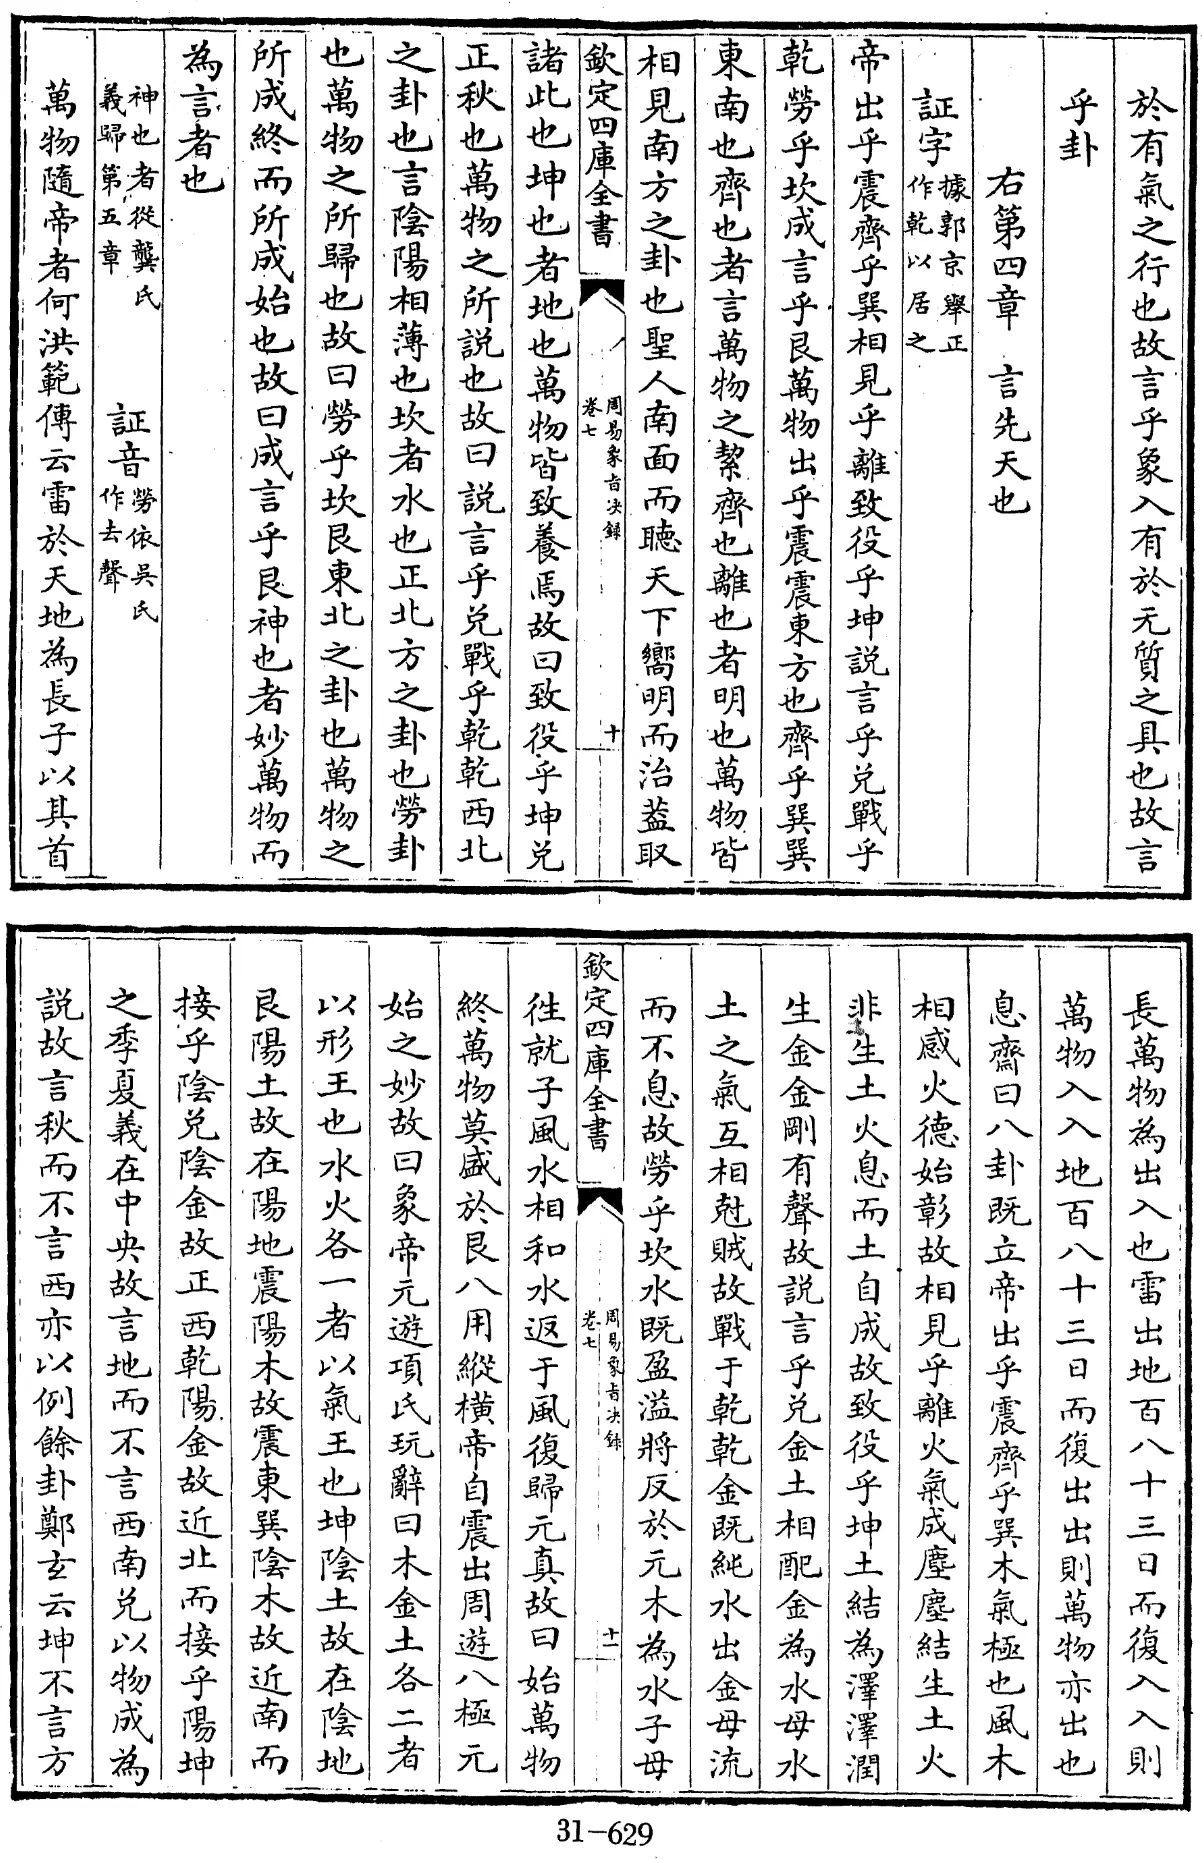 於有氣之行也故言乎象入有於无質之具也故言
乎卦
右第四章　言先天也
証字據郭京舉正作乾以居之
帝出乎震齊乎巽相見乎離致役乎坤説言乎兑戰乎
乾勞乎坎成言乎艮萬物出乎震震東方也齊乎巽巽
東南也齊也者言萬物之絜齊也離也者明也萬物皆
相見南方之卦也聖人南面而聽天下嚮明而治葢取
欽定四庫全書
周易象旨决録
卷七
十
諸此也坤也者地也萬物皆致養焉故曰致役乎坤兑
正秋也萬物之所説也故曰説言乎兑戰乎乾乾西北
之卦也言陰陽相薄也坎者水也正北方之卦也勞卦
也萬物之所歸也故曰勞乎坎艮東北之卦也萬物之
所成終而所成始也故曰成言乎艮神也者妙萬物而
為言者也
神也者從龔氏義歸第五章　証音勞依吳氏作去聲
萬物隨帝者何洪範傳云雷於天地為長子以其首
長萬物為出入也雷出地百八十三日而復入入則
萬物入入地百八十三日而復出出則萬物亦出也
息齋曰八卦既立帝出乎震齊乎巽木氣極也風木
相感火德始彰故相見乎離火氣成塵塵結生土火
非生土火息而土自成故致役乎坤土結為澤澤潤
生金金剛有聲故説言乎兑金土相配金為水母水
土之氣互相尅賊故戰于乾乾金既純水出金母流
而不息故勞乎坎水既盈溢將反於元木為水子母
欽定四庫全書
周易象旨决録
卷七
十一
徃就子風水相和水返于風復歸元真故曰始萬物
終萬物莫盛於艮八用縱横帝自震出周遊八極元
始之妙故曰象帝元遊項氏玩辭曰木金土各二者
以形王也水火各一者以氣王也坤陰土故在陰地
艮陽土故在陽地震陽木故震東巽陰木故近南而
接乎陰兑陰金故正西乾陽金故近北而接乎陽坤
之季夏義在中央故言地而不言西南兑以物成為
説故言秋而不言西亦以例餘卦鄭玄云坤不言方
31-629